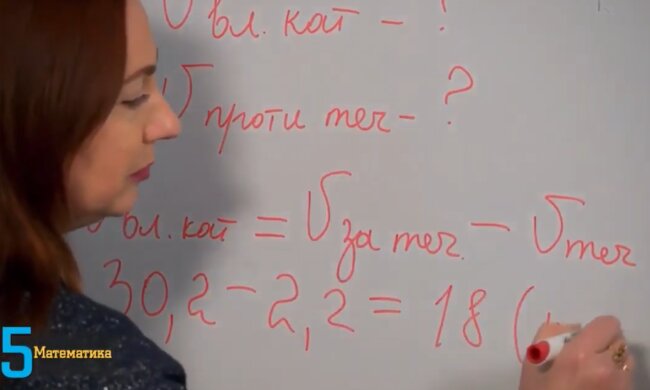 υ вл. кат - ?
υ проти теч - ?
υ вл. кат = υ за теч. - υ теч
30,2 - 2,2 = 18 (
5 Математика